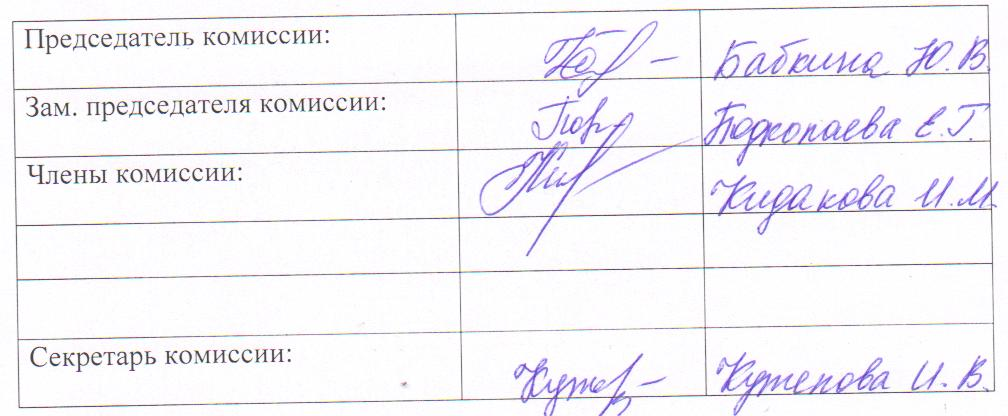 Председатель комиссии: Бабкина Ю. В.
Зам. председателя комиссии: Подкопаева Е. Г.
Члены комиссии: Кидакова И. М.
Секретарь комиссии: И. В.